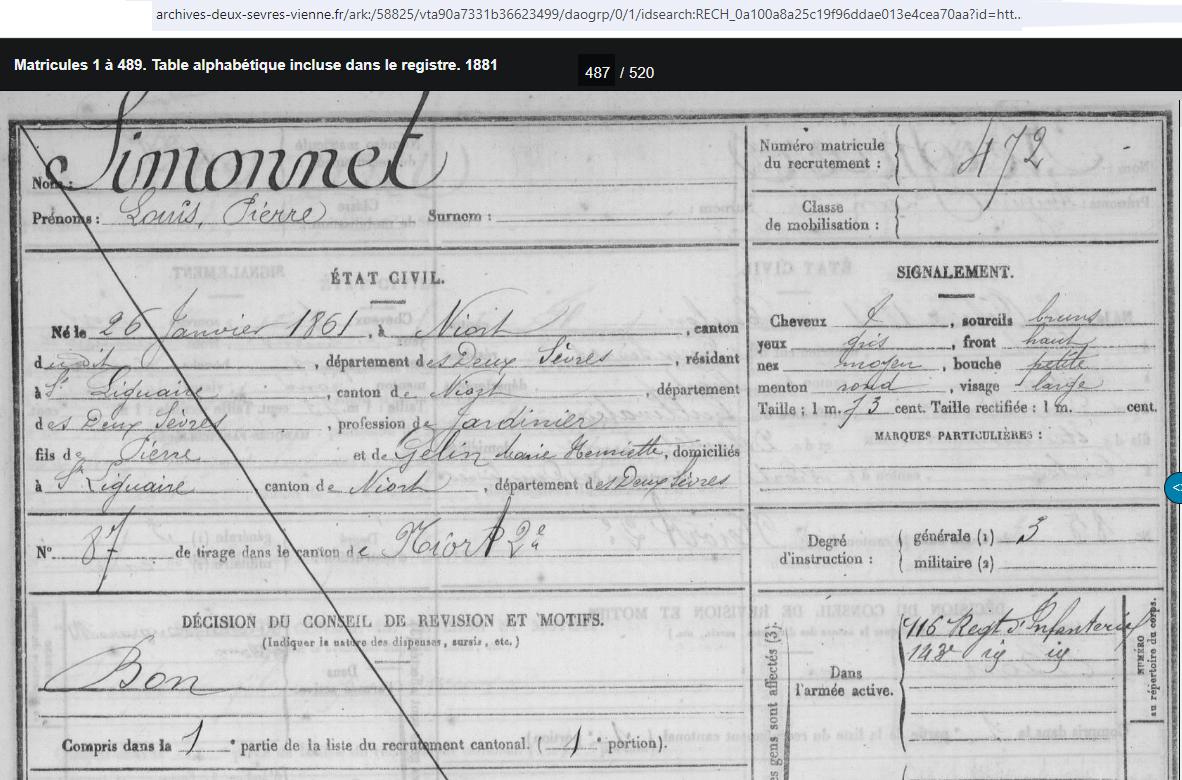 archives-deux-sevres-vienne.fr/ark:/58825/vta90a7331b36623499/daogrp/0/1/idsearch:RECH_0a100a8a25c19f96ddae013e4cea70aa?id=htt...
Matricules 1 à 489. Table alphabétique incluse dans le registre. 1881
487 / 520
Nom: Simonnet
Prénoms: Louis, Pierre Surnom:
Numéro matricule du recrutement: 472
Classe de mobilisation:
ÉTAT CIVIL.
Né le 26 Janvier 1861, à Niort, canton
dudit, département des Deux Sèvres, résidant
à St Liguaire, canton de Niort, département
des Deux Sèvres, profession de Jardinier
fils de Pierre et de Gelin Marie Henriette, domiciliés
à St Liguaire canton de Niort, département des Deux Sèvres
SIGNALEMENT.
Cheveux , sourcils bruns
yeux gris, front haut
nez moyen, bouche petite
menton rond, visage large
Taille: 1 m. 73 cent. Taille rectifiée: 1 m. cent.
MARQUES PARTICULIÈRES:
N° 87 de tirage dans le canton de Niort 2e
Degré d'instruction: générale (1) 3
militaire (2)
DÉCISION DU CONSEIL DE REVISION ET MOTIFS.
(Indiquer la nature des dispenses, sursis, etc.)
Bon
Compris dans la 1e partie de la liste du recrutement cantonal. (1e portion).
es gens sont affectés (3):
Dans l'armée active.
116 Regt d'Infanterie
143e
NUMÉRO
au répertoire du corps.